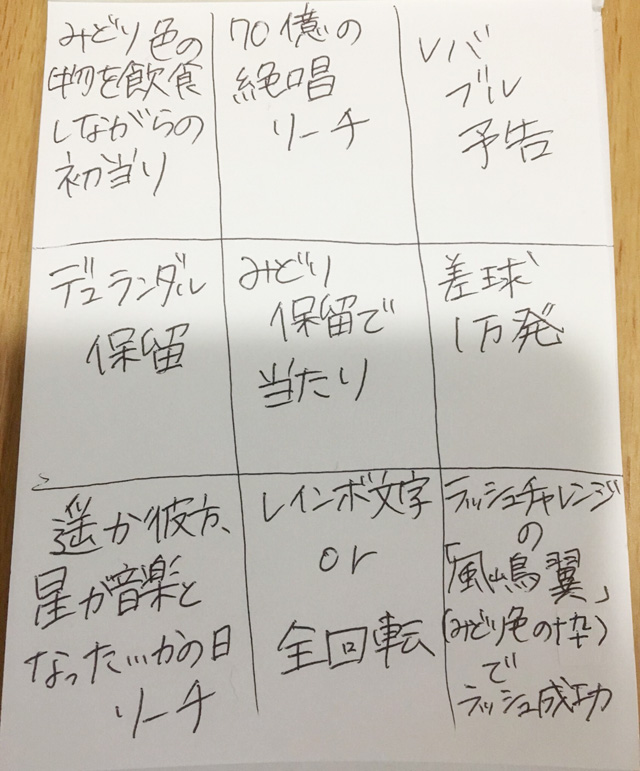 みどり色の
物を飲食
しながらの
初当り
70億の
絶唱
リーチ
レバ
ブル
予告
デュランダル
保留
みどり
保留で
当たり
差球
1万発
遥か彼方、
星が音楽と
なった…かの日
リーチ
レインボ文字
or
全回転
ラッシュチャレンジ
の
「風鳴翼」
(みどり色の枠)
で
ラッシュ成功